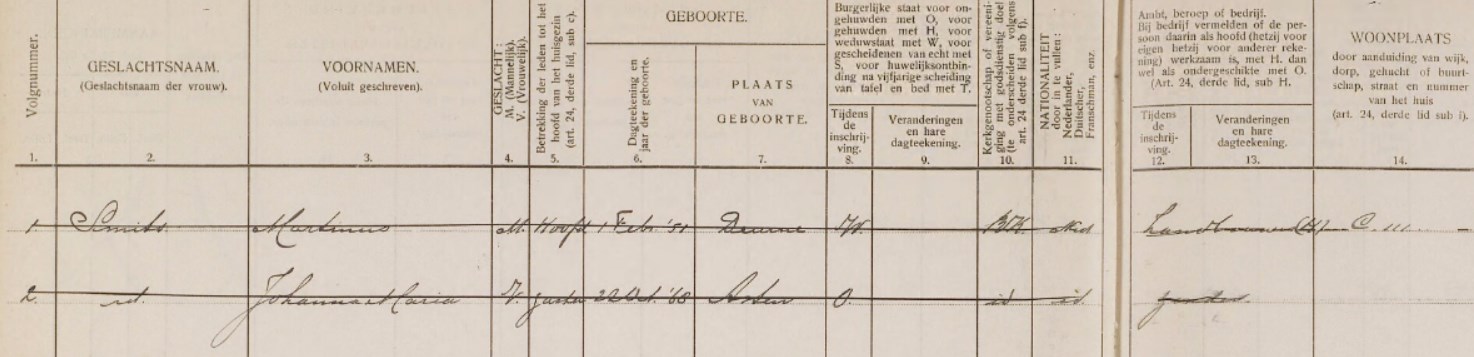 Volgnummer.
1.
GESLACHTSNAAM.
(Geslachtsnaam der vrouw).
2.
VOORNAMEN.
(Voluit geschreven).
3.
GESLACHT:
M. (Mannelijk).
V. (Vrouwelijk).
4.
Betrekking der leden tot het
hoofd van het huisgezin
(art. 24, derde lid, sub c).
5.
GEBOORTE.
Dagteekening en
jaar der geboorte.
6.
PLAATS
VAN
GEBOORTE.
7.
Burgerlijke staat voor on-
gehuwden met O, voor
gehuwden met H, voor
weduwstaat met W, voor
gescheidenen van echt met
S, voor huwelijksontbin-
ding na vijfjarige scheiding
van tafel en bed met T.
Tijdens
de
inschrij-
ving.
8.
Veranderingen
en hare
dagteekening.
9.
Kerkgenootschap of vereeni-
ging met godsdienstig doel
(te onderscheiden volgens
art. 24 derde lid sub f).
10.
NATIONALITEIT
door in te vullen:
Nederlander,
Duitscher,
Franschman, enz.
11.
Ambt, beroep of bedrijf.
Bij bedrijf vermelden of de per-
soon daarin als hoofd (hetzij voor
eigen hetzij voor anderer reke-
ning) werkzaam is, met H. dan
wel als ondergeschikte met O.
(Art. 24, derde lid, sub H.
Tijdens
de
inschrij-
ving.
12.
Veranderingen
en hare
dagteekening.
13.
WOONPLAATS
door aanduiding van wijk,
dorp, gehucht of buurt-
schap, straat en nummer
van het huis
(art. 24, derde lid sub i).
14.
1. Smits Martinus M. Hoofd 1 Febr. '51 Deurne W. R.K. Ned Landbouwer (H) C. 111 –
2. id. Johanna Maria V. 22 Oct. '68 Asten O. id id.